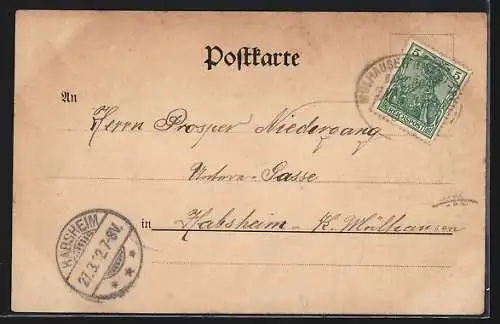 Postkarte
MÜLHAUSEN
5 5
REICHSPOST
An
Herrn Prosper Niedergang
Untere-Gasse
in Habsheim K. Mülhausen
HABSHEIM
27.3.02.7-8V.